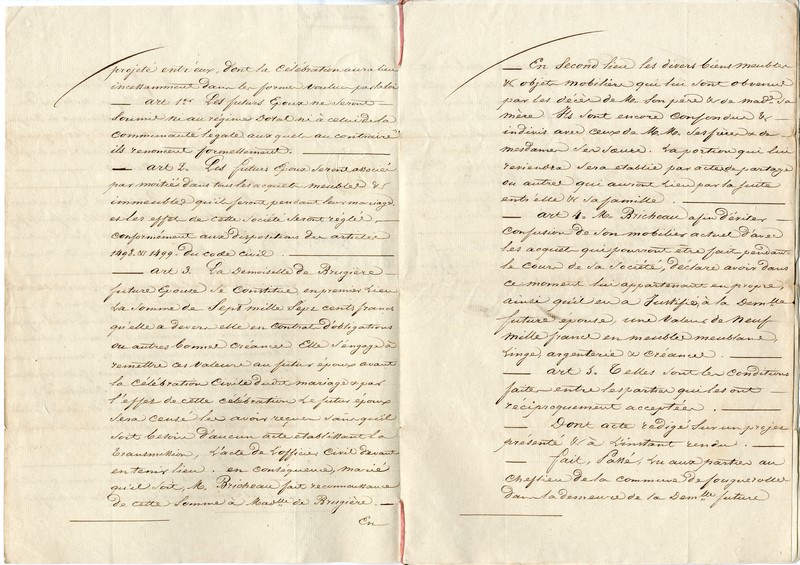 projeté entr'eux, dont la célébration aura lieu
incessamment dans les formes voulues par la loi
— art 1er. Les futurs Epoux ne seront —
soumis ni au régime Dotal ni à celui de la
communauté légale auxquels au contraire
ils renoncent formellement. —
— art 2. Les futurs Epoux seront associés
par moitiés dans tous les acquets meubles &
immeubles qu'ils feront pendant leur mariage
et les effets de cette Société seront réglés —
conformément aux dispositions des articles
1498 & 1499 du code civil. —
— art 3. La Demoiselle de Brugière —
future Epouse se Constitue en premier Lieu
La Somme de Sept mille Sept cents francs
qu'elle a devers elle en Contrats d'obligations
ou autres bonnes Créances. Elle s'engage à
remettre ces Valeurs au futur époux avant
la Célébration Civile dudit mariage & par
l'effet de cette célébration Le futur époux
Sera censé les avoir reçues sans qu'il
soit besoin d'aucun acte établissant La
transmission, L'acte de L'officier Civil devant
en tenir lieu. en conséquence, marié
qu'il soit, M. Bricheau fait reconnaissance
de cette Somme à Madlle de Brugière. —
En
— En Second lieu les divers biens meubles
& objets mobiliers qui lui sont obvenus
par les décès de M. Son père & de made Sa
mère. Ils sont encore confondus &
indivis avec ceux de MM. Ses frères & de
mesdames Ses Sœurs. La portion qui lui
reviendra Sera établie par acte de partage
ou autres qui auront Lieu par la suite
entr'elle & sa famille. —
— art 4. M. Bricheau afin d'éviter —
confusion de Son mobilier actuel d'avec
les acquets qui pourront être faits pendant
le cours de la Société, déclare avoir dans
ce moment lui appartenant en propre,
ainsi qu'il en a Justifié, à la Demlle
future épouse, une Valeur de Neuf
mille francs en meubles meublans,
Linge, argenterie & Créances. —
— art 5. Telles sont les conditions
faites entre les parties qui les ont —
réciproquement acceptées. —
— Dont acte rédigé Sur un projet
présenté & à L'instant rendu. —
— fait, Passé, Lu aux parties au
cheflieu de la commune de fougerolles
dans la demeure de la Demlle future